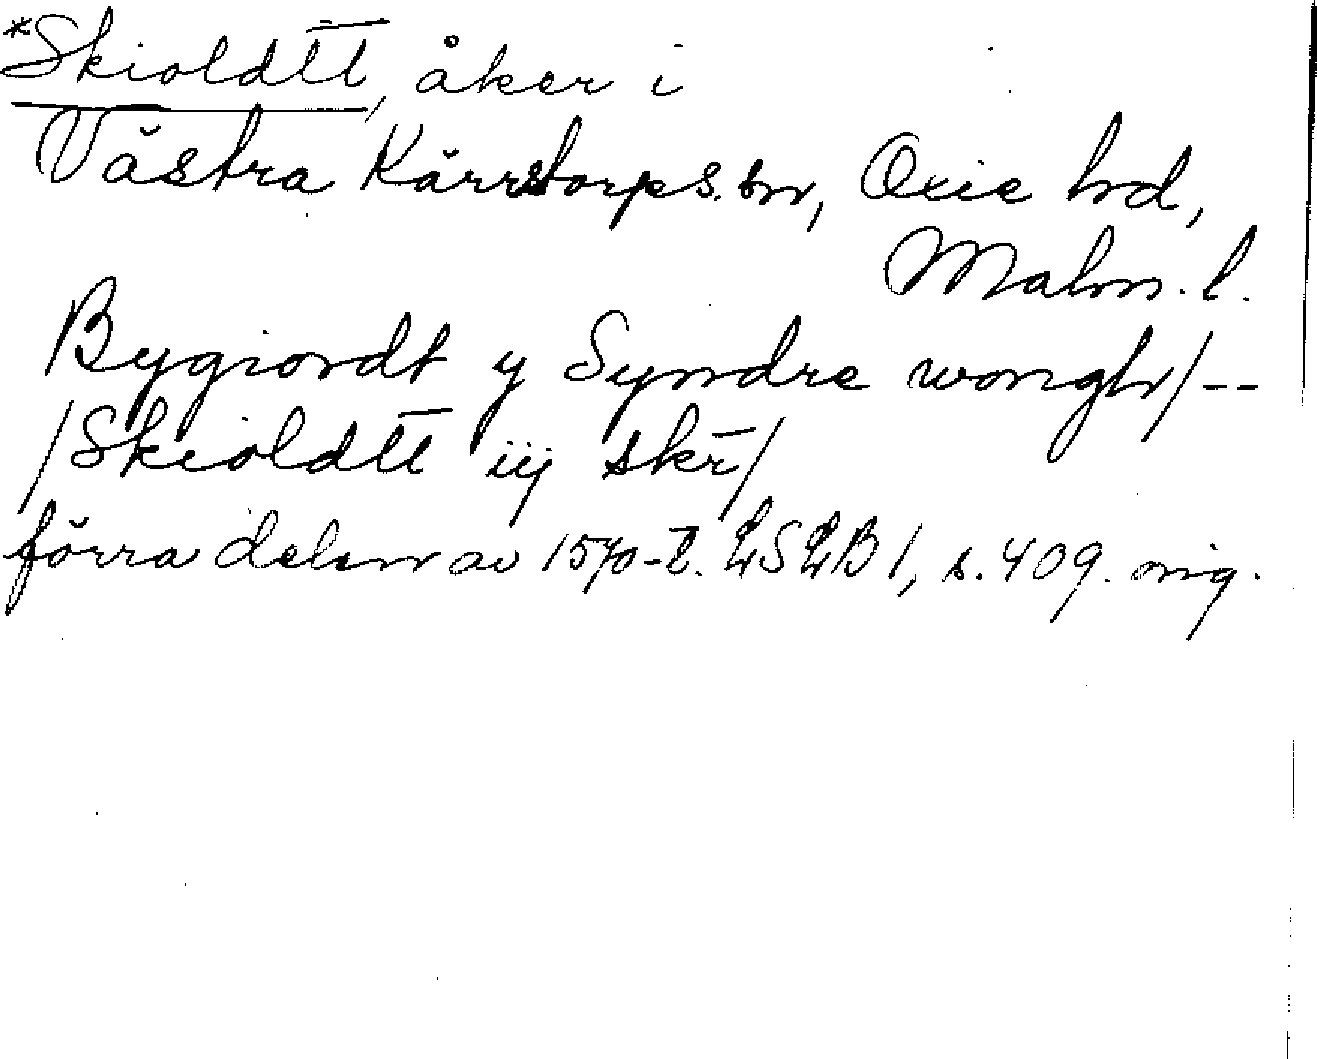 *Skioldtt̄, åker i
Västra Kärrstorps sn, Oxie hd,
Malm. l.
Bygiordt y Syndre wongh/--
/Skioldtt̄ iij skr̄/
förra delen av 1570-t. LSLB 1, s. 409. orig.